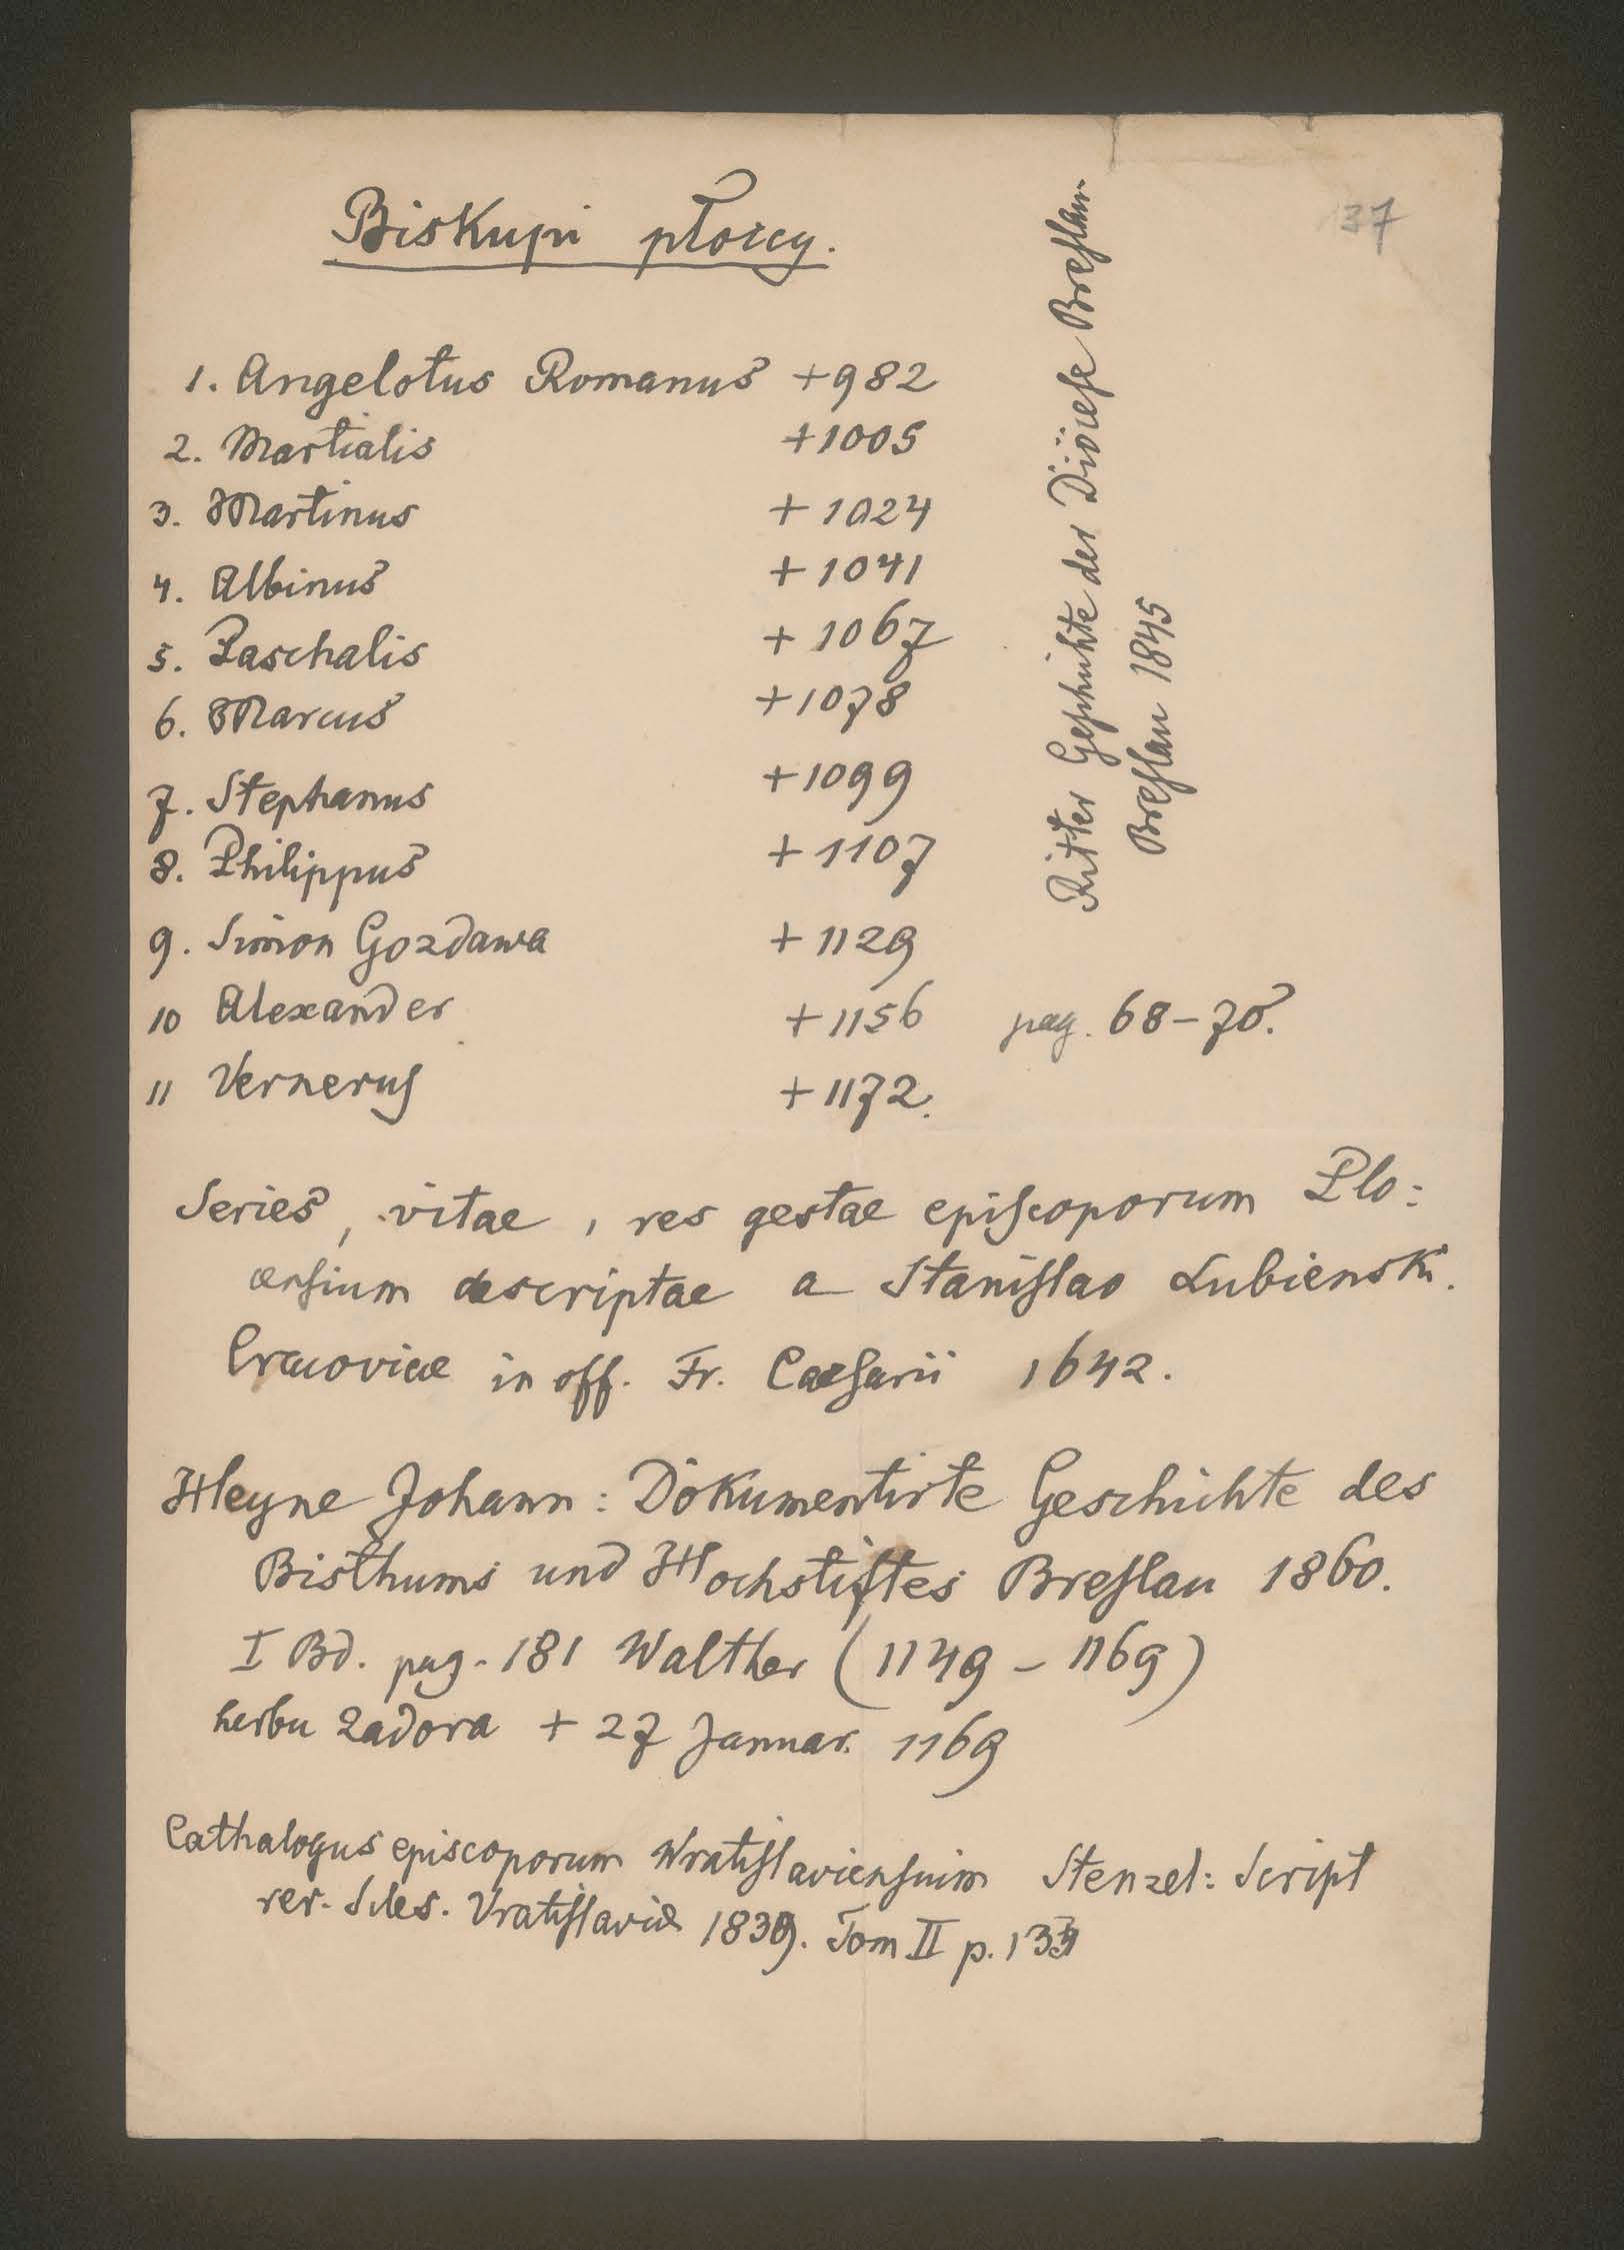 37
Biskupi płoccy.
1. Angelotus Romanus +982
2. Martialis +1005
3. Martinus + 1024
4. Albinus + 1041
5. Paschalis + 1067
6. Marcus +1078
7. Stephanus +1099
8. Philippus + 1107
9. Simon Gozdawa + 1129
10 Alexander +1156 pag. 68–70.
11 Vernerus + 1172.
Ritter Geschichte der Diöcese Breslau
Breslau 1845
Series, vitae, res gestae episcoporum Plo:
censium descriptae a Stanislao Lubienski.
Cracoviae in off. Fr. Caesarii 1642.
Heyne Johann: Dokumentirte Geschichte des
Bisthums und Hochstiftes Breslau 1860.
I Bd. pag. 181 Walther (1149 – 1169)
herbu Zadora + 27 Januar. 1169
Cathalogus episcoporum Wratislaviensium Stenzel: Script
rer. Siles. Vratislaviae 1839. Tom II p.